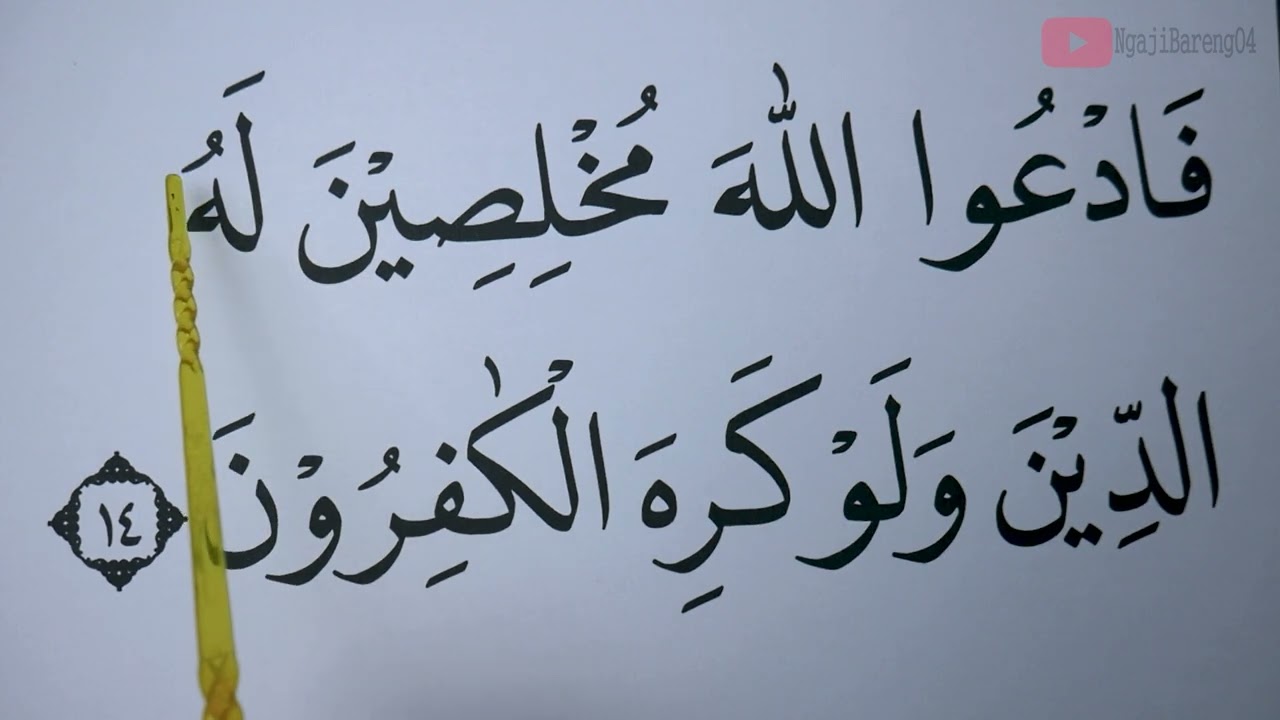 NgajiBareng04
فَادْعُوا اللّٰهَ مُخْلِصِيْنَ لَهُ
الدِّيْنَ وَلَوْ كَرِهَ الْكٰفِرُوْنَ ١٤